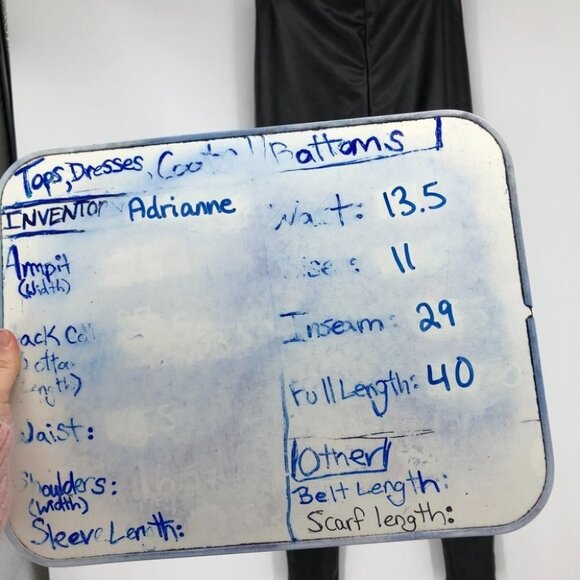 Tops, Dresses, Coats
INVENTOR Adrianne
Armpit
(width)
ack Col
otto
ength)
Waist:
Shoulders:
(width)
Sleeve Length:
Bottoms
Waist: 13.5
Rise: 11
Inseam: 29
Full Length: 40
Other
Belt Length:
Scarf length: